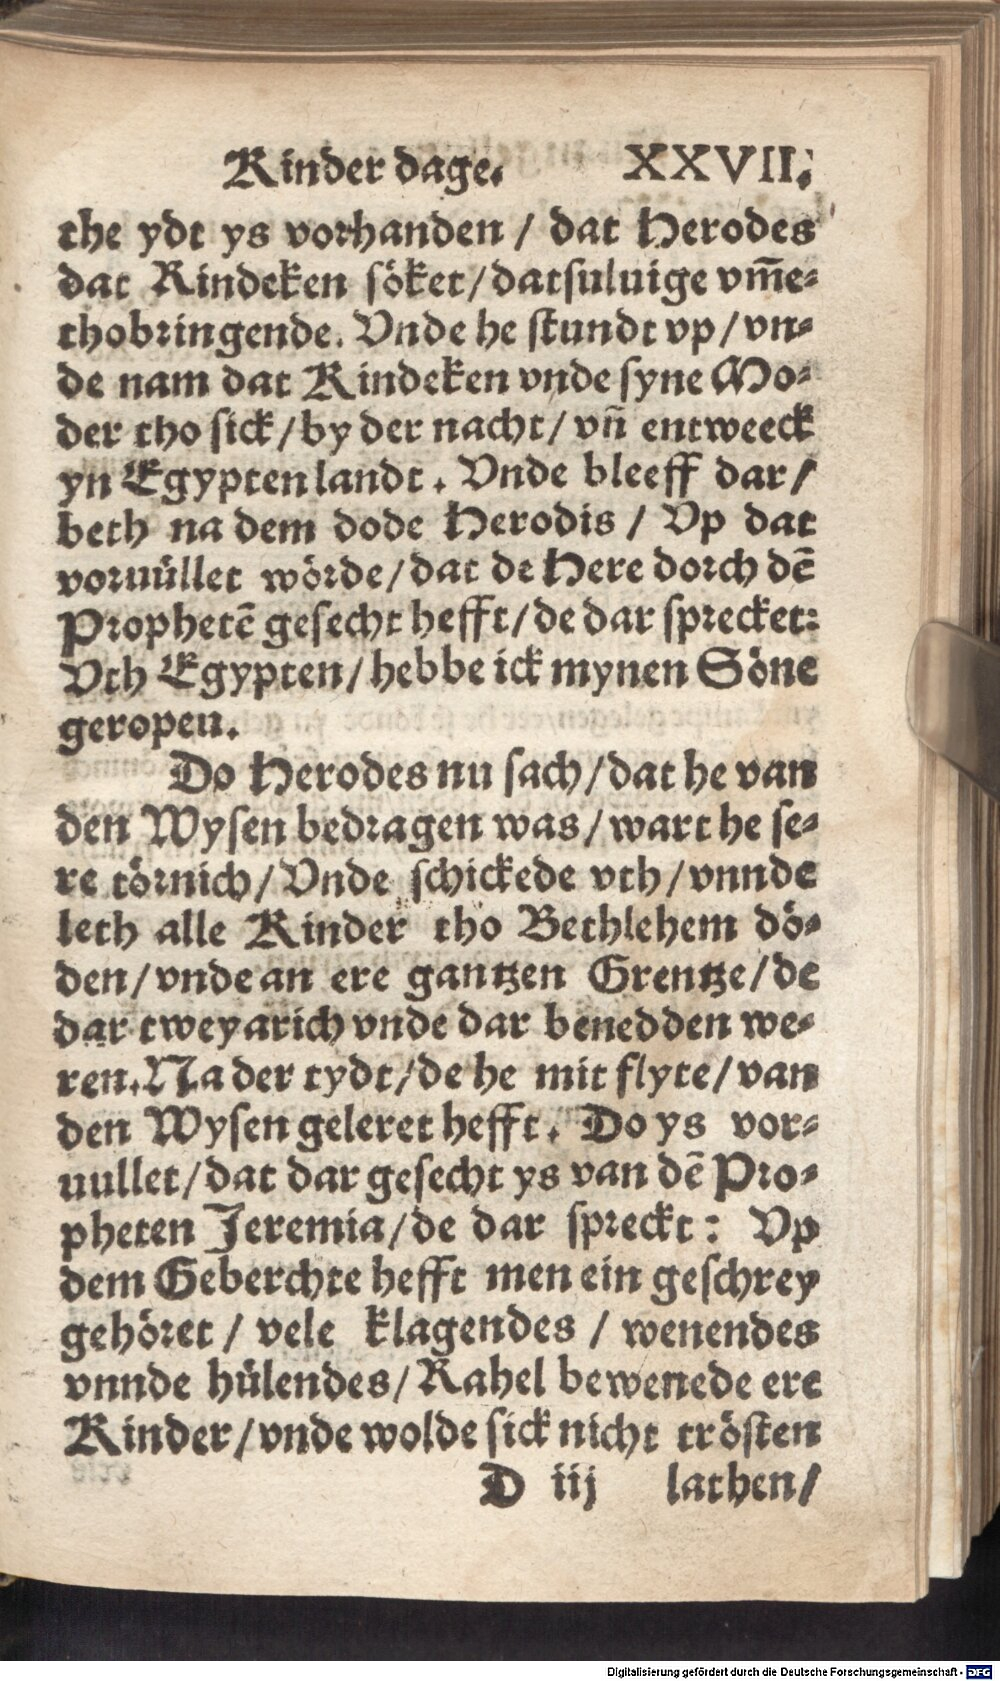 Kinder dage. XXVII.
the ydt ys vorhanden / dat Herodes
dat Kindeken söket / datsuluige vm̃e-
thobringende. Vnde he stundt vp / vn-
de nam dat Kindeken vnde syne Mo-
der tho sick / by der nacht / vñ entweeck
yn Egypten landt. Vnde bleeff dar /
beth na dem dode Herodis / Vp dat
voruüllet wörde / dat de Here dorch dē
Prophetē gesecht hefft / de dar sprecket:
Vth Egypten / hebbe ick mynen Söne
geropen.
Do Herodes nu sach / dat he van
den Wysen bedragen was / wart he se-
re törnich / Vnde schickede vth / vnnde
leth alle Kinder tho Bethlehem dö-
den / vnde an ere gantzen Grentze / de
dar tweyarich vnde dar benedden we-
ren. Na der tydt / de he mit flyte / van
den Wysen geleret hefft. Do ys vor-
uullet / dat dar gesecht ys van dē Pro-
pheten Jeremia / de dar spreckt: Vp
dem Geberchte hefft men ein geschrey
gehöret / vele klagendes / wenendes
vnnde hülendes / Rahel bewenede ere
Kinder / vnde wolde sick nicht trösten
D iij lathen /
Digitalisierung gefördert durch die Deutsche Forschungsgemeinschaft - DFG